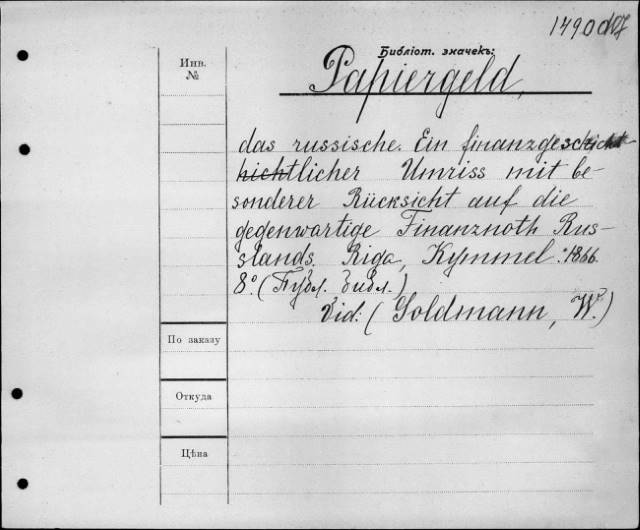 1490
Библіот. значекъ:
Инв.
№
Papiergeld,
das russische. Ein finanzgeschicht
hichtlicher Umriss mit be-
sonderer Rücksicht auf die
gegenwartige Finanznoth Rus-
slands. Riga, Kymmel. 1866.
8° (Публ. библ.)
Vid: (Goldmann, W.)
По заказу
Откуда
Цѣна